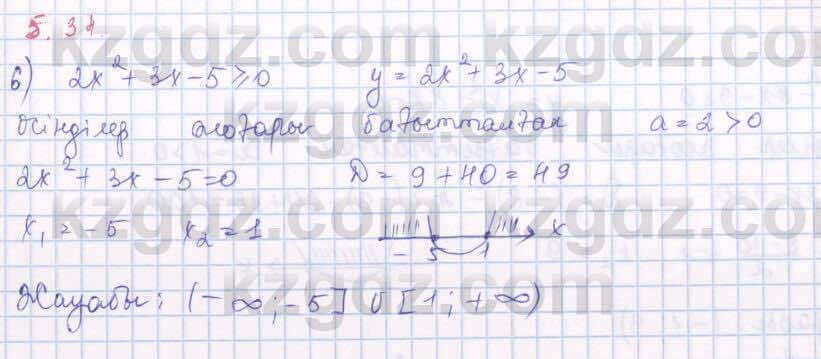 5.31.
б) 2x² + 3x - 5 ≥ 0 y = 2x² + 3x - 5
жоғары бағытталған a = 2 > 0
2x² + 3x - 5 = 0 D = 9 + 40 = 49
x₁ = -5 x₂ = 1 x
- 5 1
Жауабы: (-∞; -5] ∪ [1; +∞)
kzgdz.com